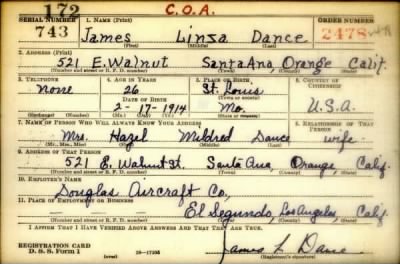 172 C.O.A.
SERIAL NUMBER 1. NAME (Print) ORDER NUMBER
743 James Linza Dance 2478
(First) (Middle) (Last)
2. ADDRESS (Print)
521 E. Walnut Santa Ana, Orange Calif.
(Number and street or R. F. D. number) (Town) (County) (State)
3. TELEPHONE 4. AGE IN YEARS 5. PLACE OF BIRTH 6. COUNTRY OF CITIZENSHIP
none 26 St. Louis
DATE OF BIRTH (Town or county)
2-17-1914 Mo. U.S.A.
(Exchange) (Number) (Mo.) (Day) (Yr.) (State or country)
7. NAME OF PERSON WHO WILL ALWAYS KNOW YOUR ADDRESS 8. RELATIONSHIP OF THAT PERSON
Mrs. Hazel Mildred Dance wife
(Mr., Mrs., Miss) (First) (Middle) (Last)
9. ADDRESS OF THAT PERSON
521 E. Walnut St. Santa Ana, Orange, Calif.
(Number and street or R. F. D. number) (Town) (County) (State)
10. EMPLOYER'S NAME
Douglas Aircraft Co,
11. PLACE OF EMPLOYMENT OR BUSINESS
El Segundo, Los Angeles, Calif.
(Number and street or R. F. D. number) (Town) (County) (State)
I AFFIRM THAT I HAVE VERIFIED ABOVE ANSWERS AND THAT THEY ARE TRUE.
REGISTRATION CARD
D. S. S. Form 1 (over) James L Dance
(Registrant's signature)